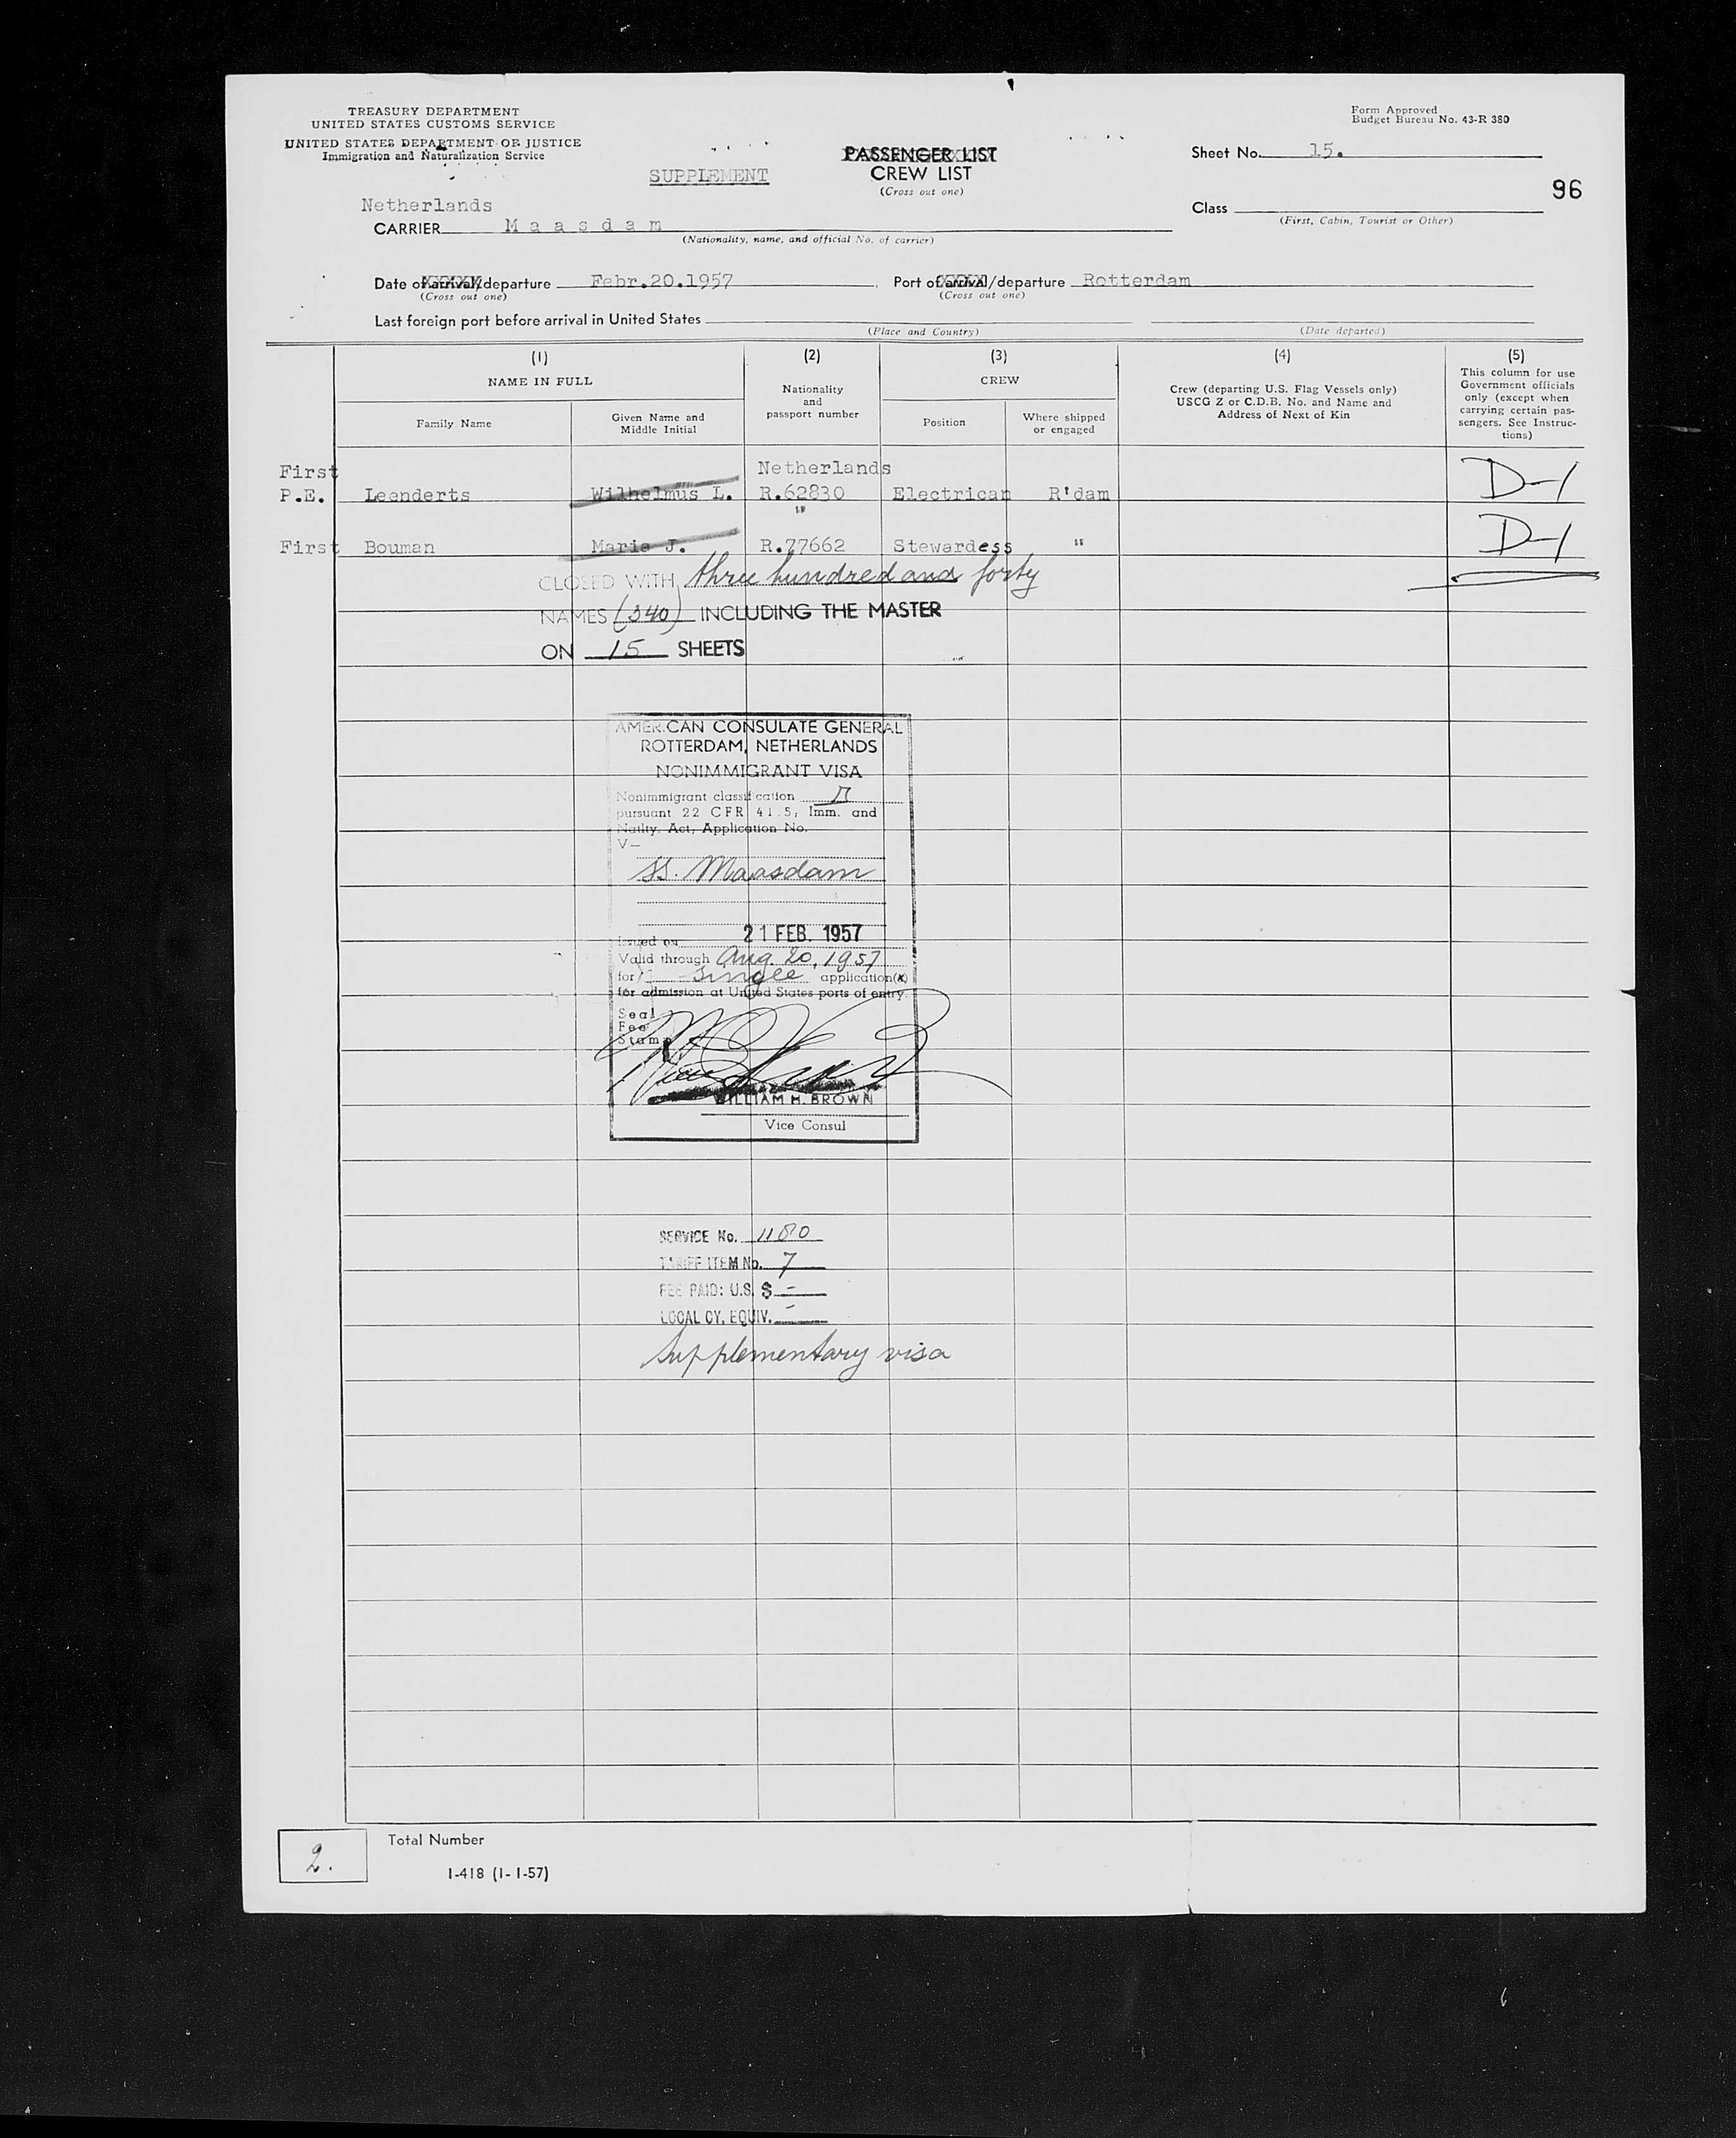 TREASURY DEPARTMENT
UNITED STATES CUSTOMS SERVICE
UNITED STATES DEPARTMENT OF JUSTICE
Immigration and Naturalization Service
Form Approved
Budget Bureau No. 43-R 380
SUPPLEMENT
PASSENGER LIST
CREW LIST
(Cross out one)
Sheet No. 15.
96
Class
(First, Cabin, Tourist or Other)
Netherlands
CARRIER M a a s d a m
(Nationality, name, and official No. of carrier)
Date of arrival/departure Febr.20.1957
(Cross out one)
Port of arrival/departure Rotterdam
(Cross out one)
Last foreign port before arrival in United States
(Place and Country)
(Date departed)
(1) (2) (3) (4) (5)
NAME IN FULL
Family Name
Given Name and Middle Initial
Nationality and passport number
CREW
Position
Where shipped or engaged
Crew (departing U.S. Flag Vessels only)
USCG Z or C.D.B. No. and Name and
Address of Next of Kin
This column for use
Government officials
only (except when
carrying certain pas-
sengers. See Instruc-
tions)
First Netherlands
P.E. Leenderts Wilhelmus L. R.62830 Electrican R'dam D-1
"
First Bouman Marie J. R.77662 Stewardess " D-1
CLOSED WITH three hundred and forty
NAMES (340) INCLUDING THE MASTER
ON 15 SHEETS
AMERICAN CONSULATE GENERAL
ROTTERDAM, NETHERLANDS
NONIMMIGRANT VISA
Nonimmigrant classification D
pursuant 22 CFR 41.5, Imm. and
Natlty. Act, Application No.
V—
SS. Maasdam
Issued on 21 FEB. 1957
Valid through Aug. 20, 1957
for single application(s)
for admission at United States ports of entry.
Seal
Fee
Stamp
WILLIAM H. BROWN
Vice Consul
SERVICE No. 1180
TARIFF ITEM No. 7
FEE PAID: U.S. $ -
LOCAL CY. EQUIV. -
Supplementary visa
2.
Total Number
I-418 (1-1-57)